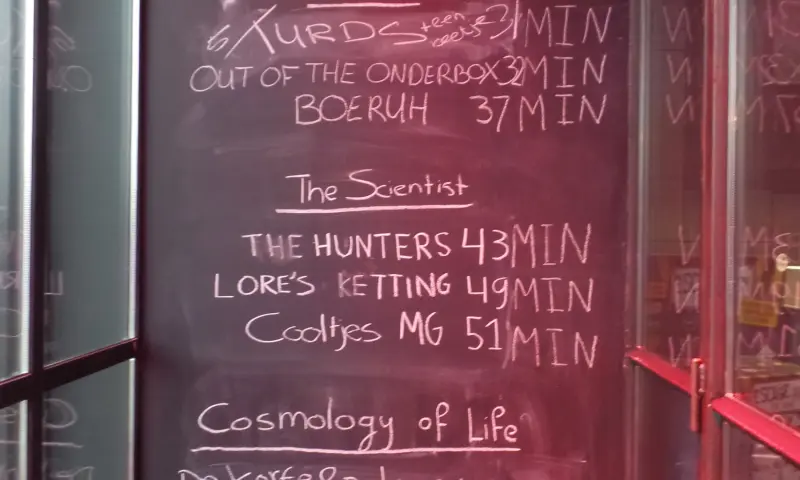 TURDS 31 MIN
OUT OF THE ONDERBOX 32 MIN
BOERUH 37 MIN
The Scientist
THE HUNTERS 43 MIN
LORE'S KETTING 49 MIN
Cooltjes MG 51 MIN
Cosmology of Life